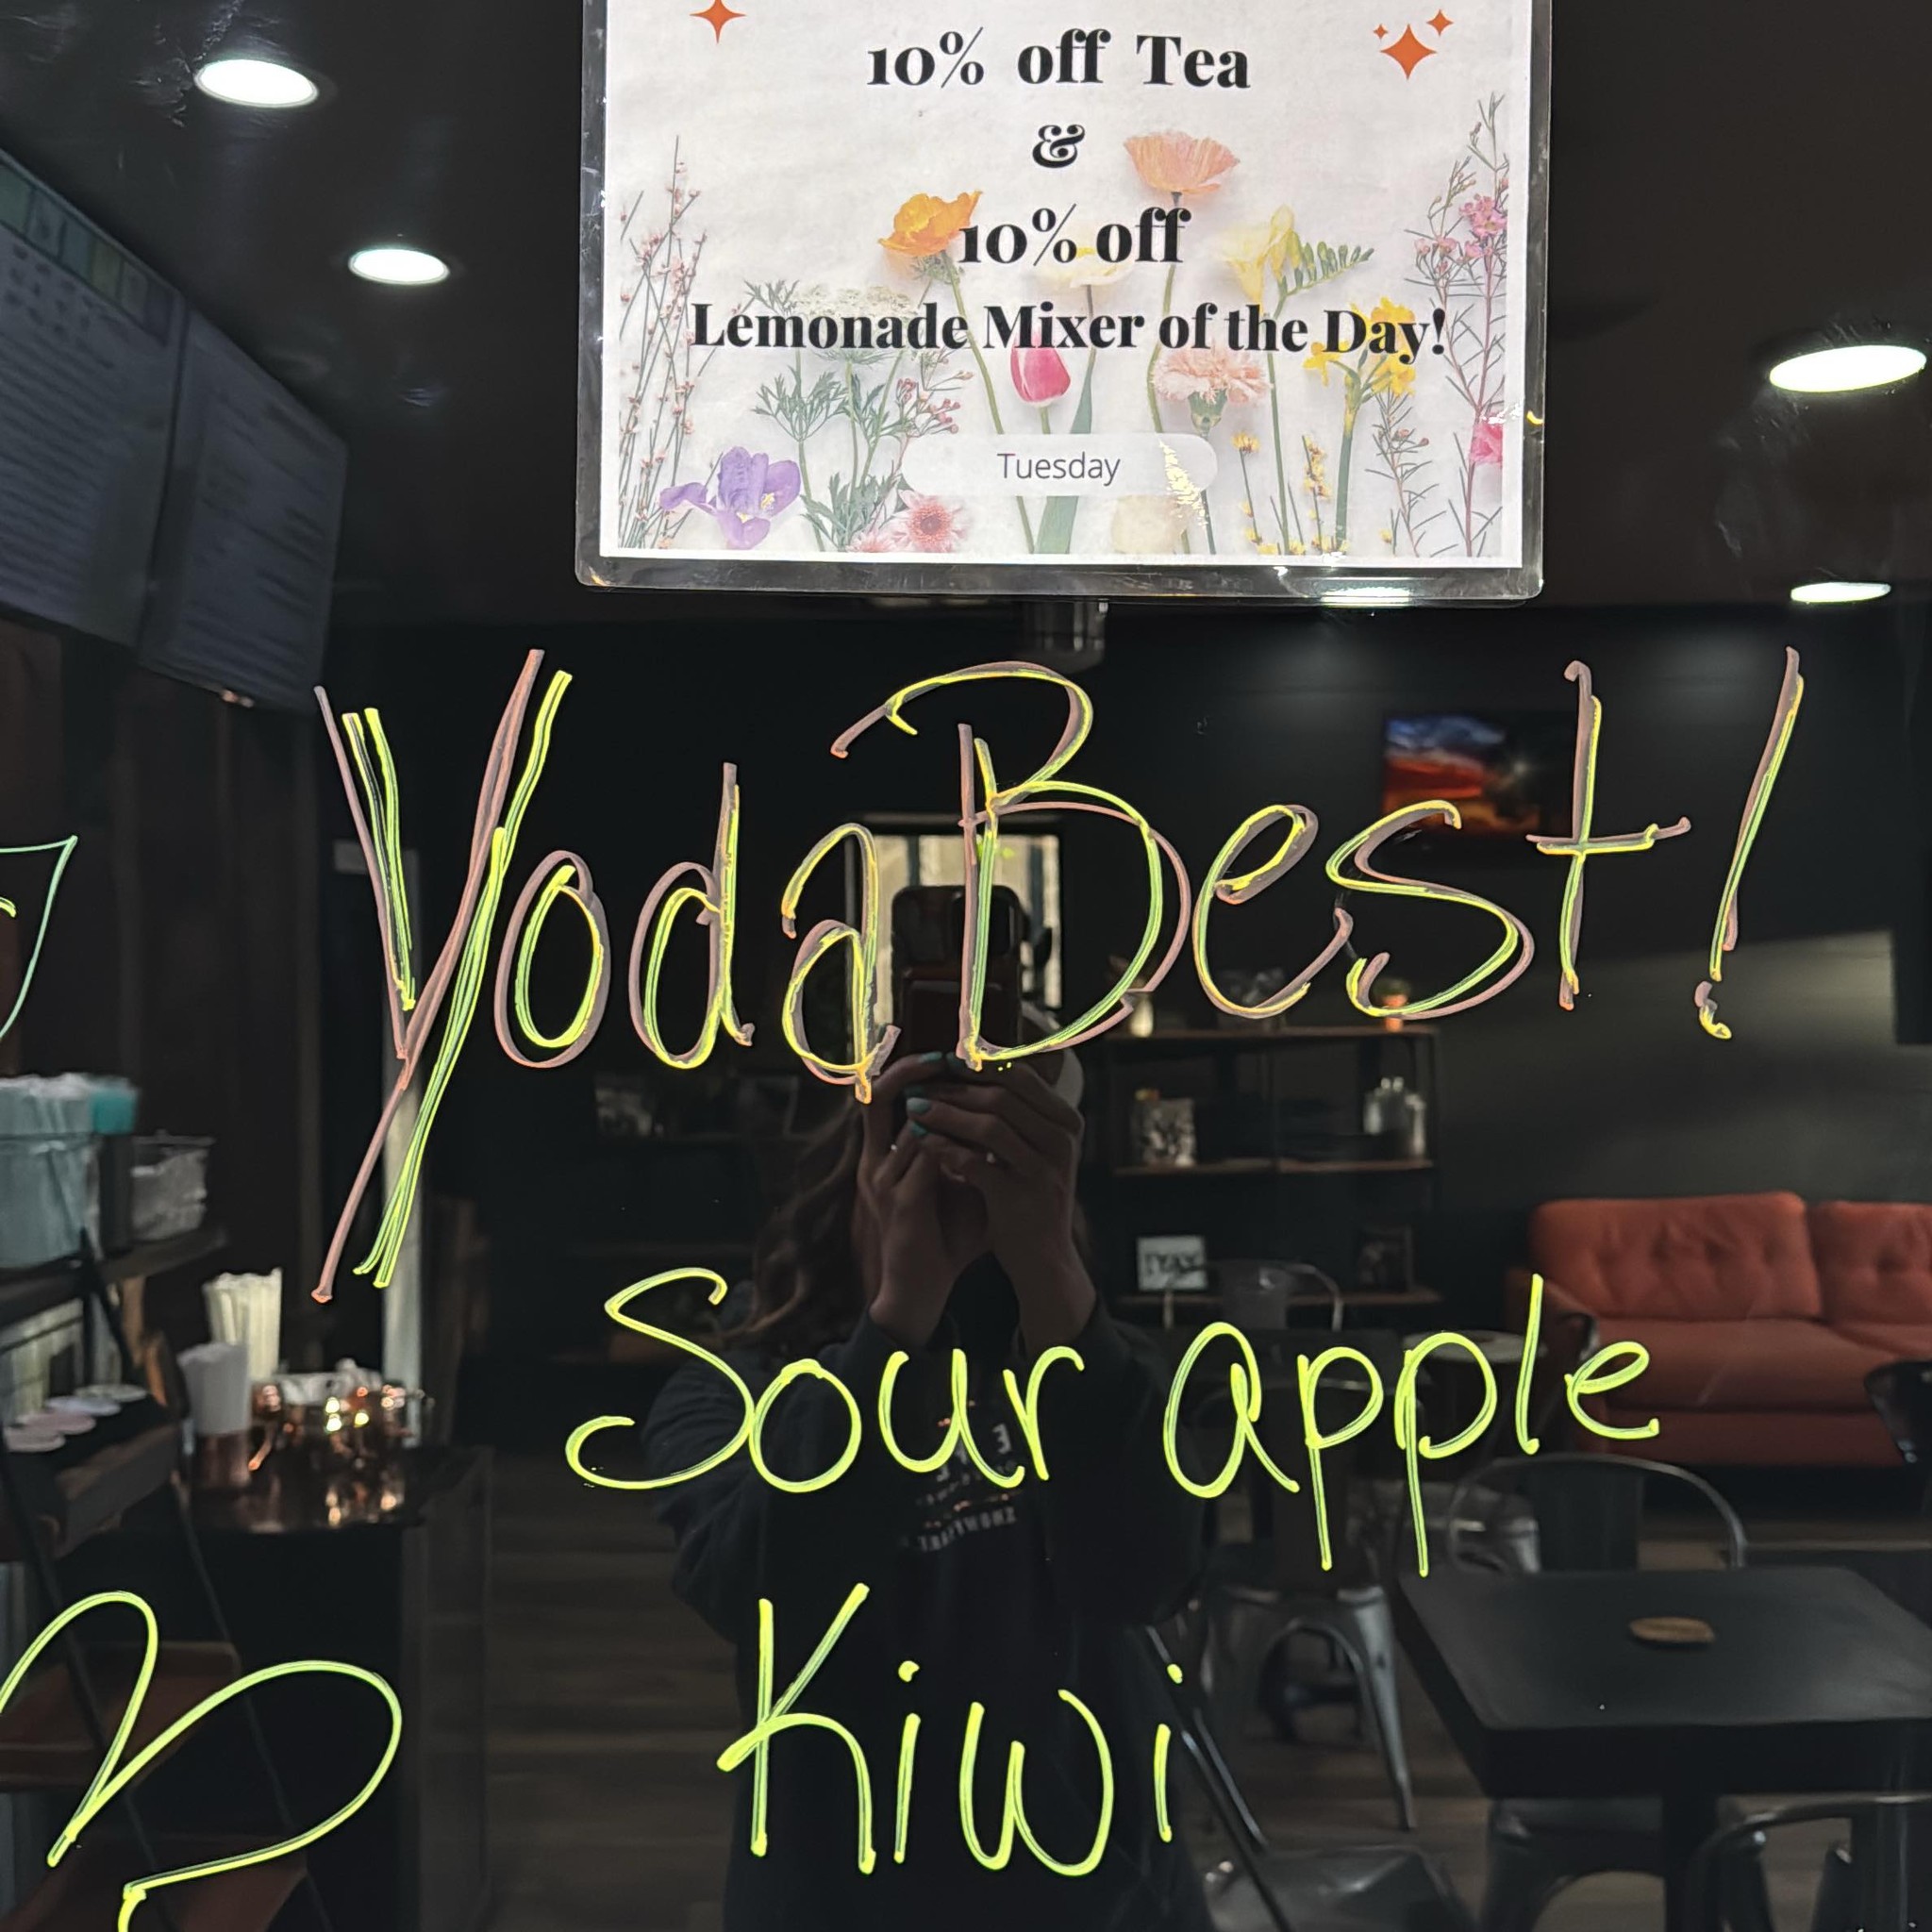 10% off Tea
&
10% off
Lemonade Mixer of the Day!
Tuesday
Yoda Best!
Sour apple
Kiwi